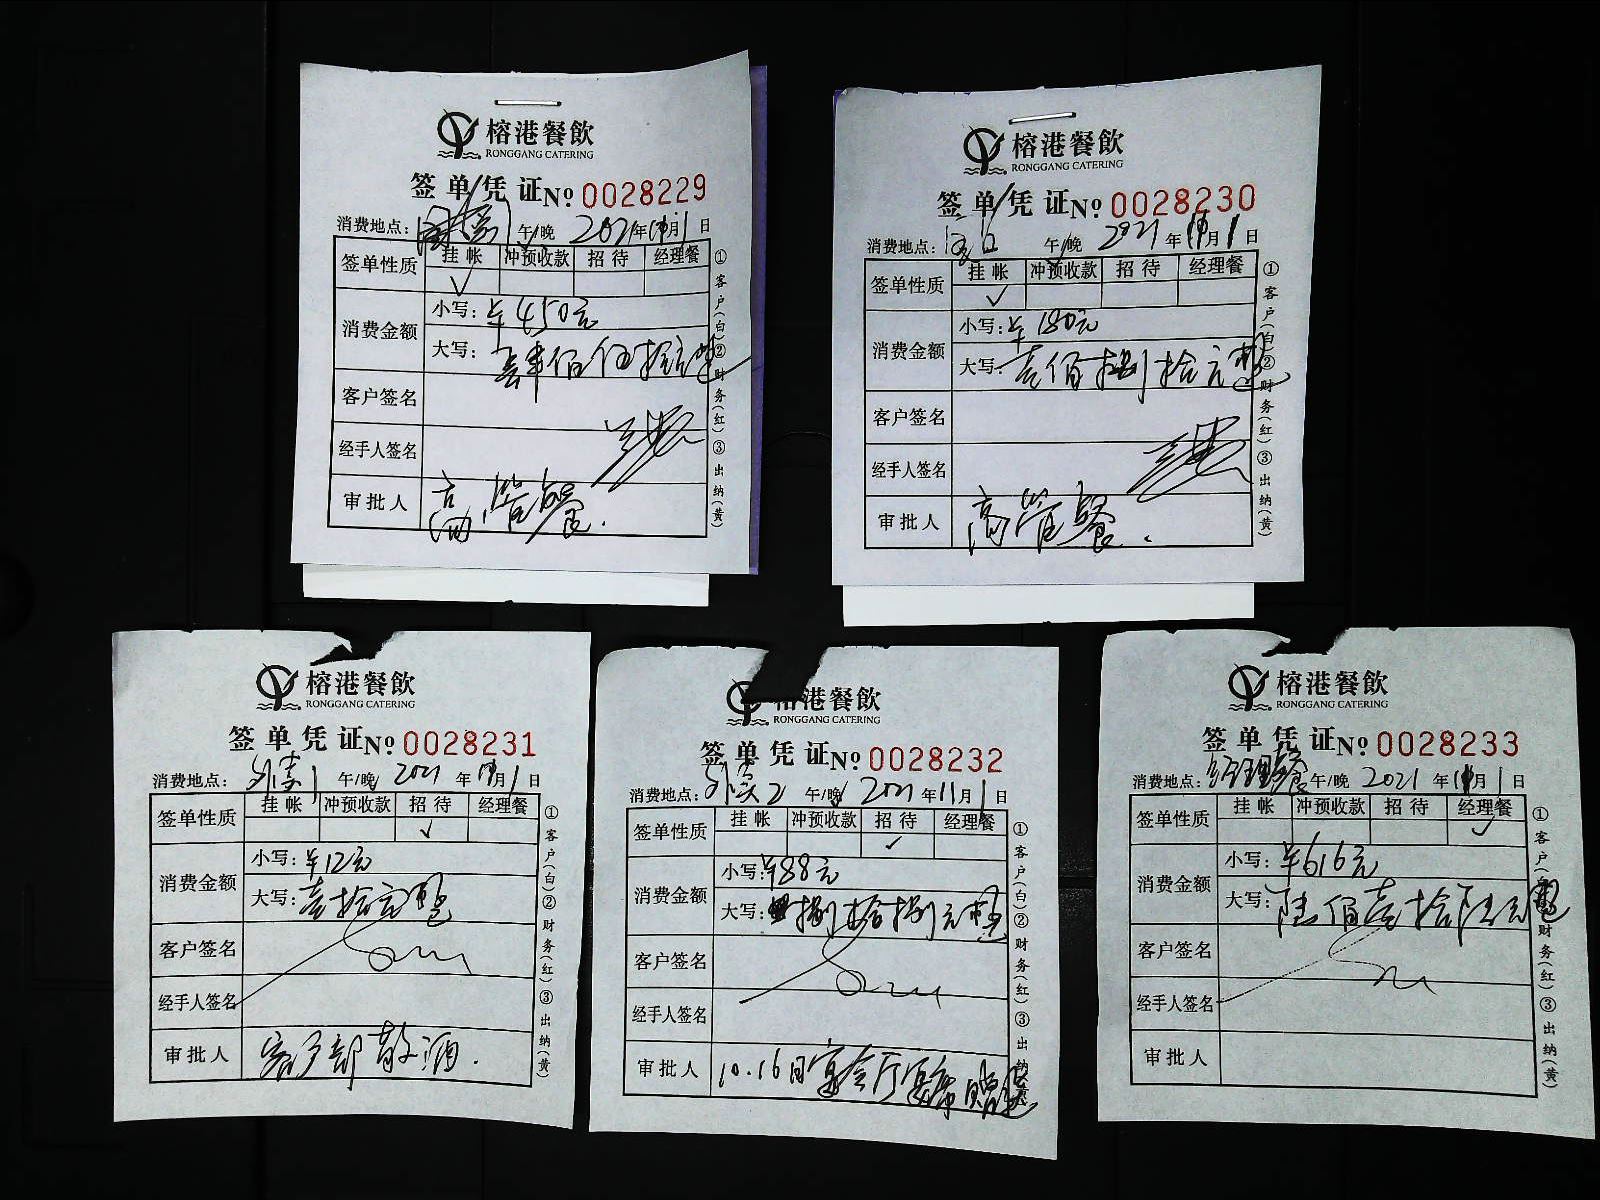 榕港餐飲
RONGGANG CATERING
签单凭证 №0028229
消费地点: 午/晚 2021年11月1日
签单性质 挂帐 冲预收款 招待 经理餐
✓
消费金额 小写: ¥450元
大写: 肆佰伍拾元整
客户签名
经手人签名
审批人 高管餐.
①客户(白)②财务(红)③出纳(黄)
榕港餐飲
RONGGANG CATERING
签单凭证 №0028230
消费地点: 午/晚 2021年11月1日
签单性质 挂帐 冲预收款 招待 经理餐
✓
消费金额 小写: ¥180元
大写: 壹佰捌拾元整
客户签名
经手人签名
审批人 高管餐.
①客户(白)②财务(红)③出纳(黄)
榕港餐飲
RONGGANG CATERING
签单凭证 №0028231
消费地点: 外卖1 午/晚 2021年11月1日
签单性质 挂帐 冲预收款 招待 经理餐
✓
消费金额 小写: ¥12元
大写: 壹拾元整
客户签名
经手人签名
审批人 客户部敬酒.
①客户(白)②财务(红)③出纳(黄)
榕港餐飲
RONGGANG CATERING
签单凭证 №0028232
消费地点: 外卖2 午/晚 2021年11月1日
签单性质 挂帐 冲预收款 招待 经理餐
✓
消费金额 小写: ¥88元
大写: 捌拾捌元整
客户签名
经手人签名
审批人 10.16日宴会厅宴席赠送
①客户(白)②财务(红)③出纳(黄)
榕港餐飲
RONGGANG CATERING
签单凭证 №0028233
消费地点: 经理餐 午/晚 2021年11月1日
签单性质 挂帐 冲预收款 招待 经理餐
✓
消费金额 小写: ¥616元
大写: 陆佰壹拾陆元整
客户签名
经手人签名
审批人
①客户(白)②财务(红)③出纳(黄)